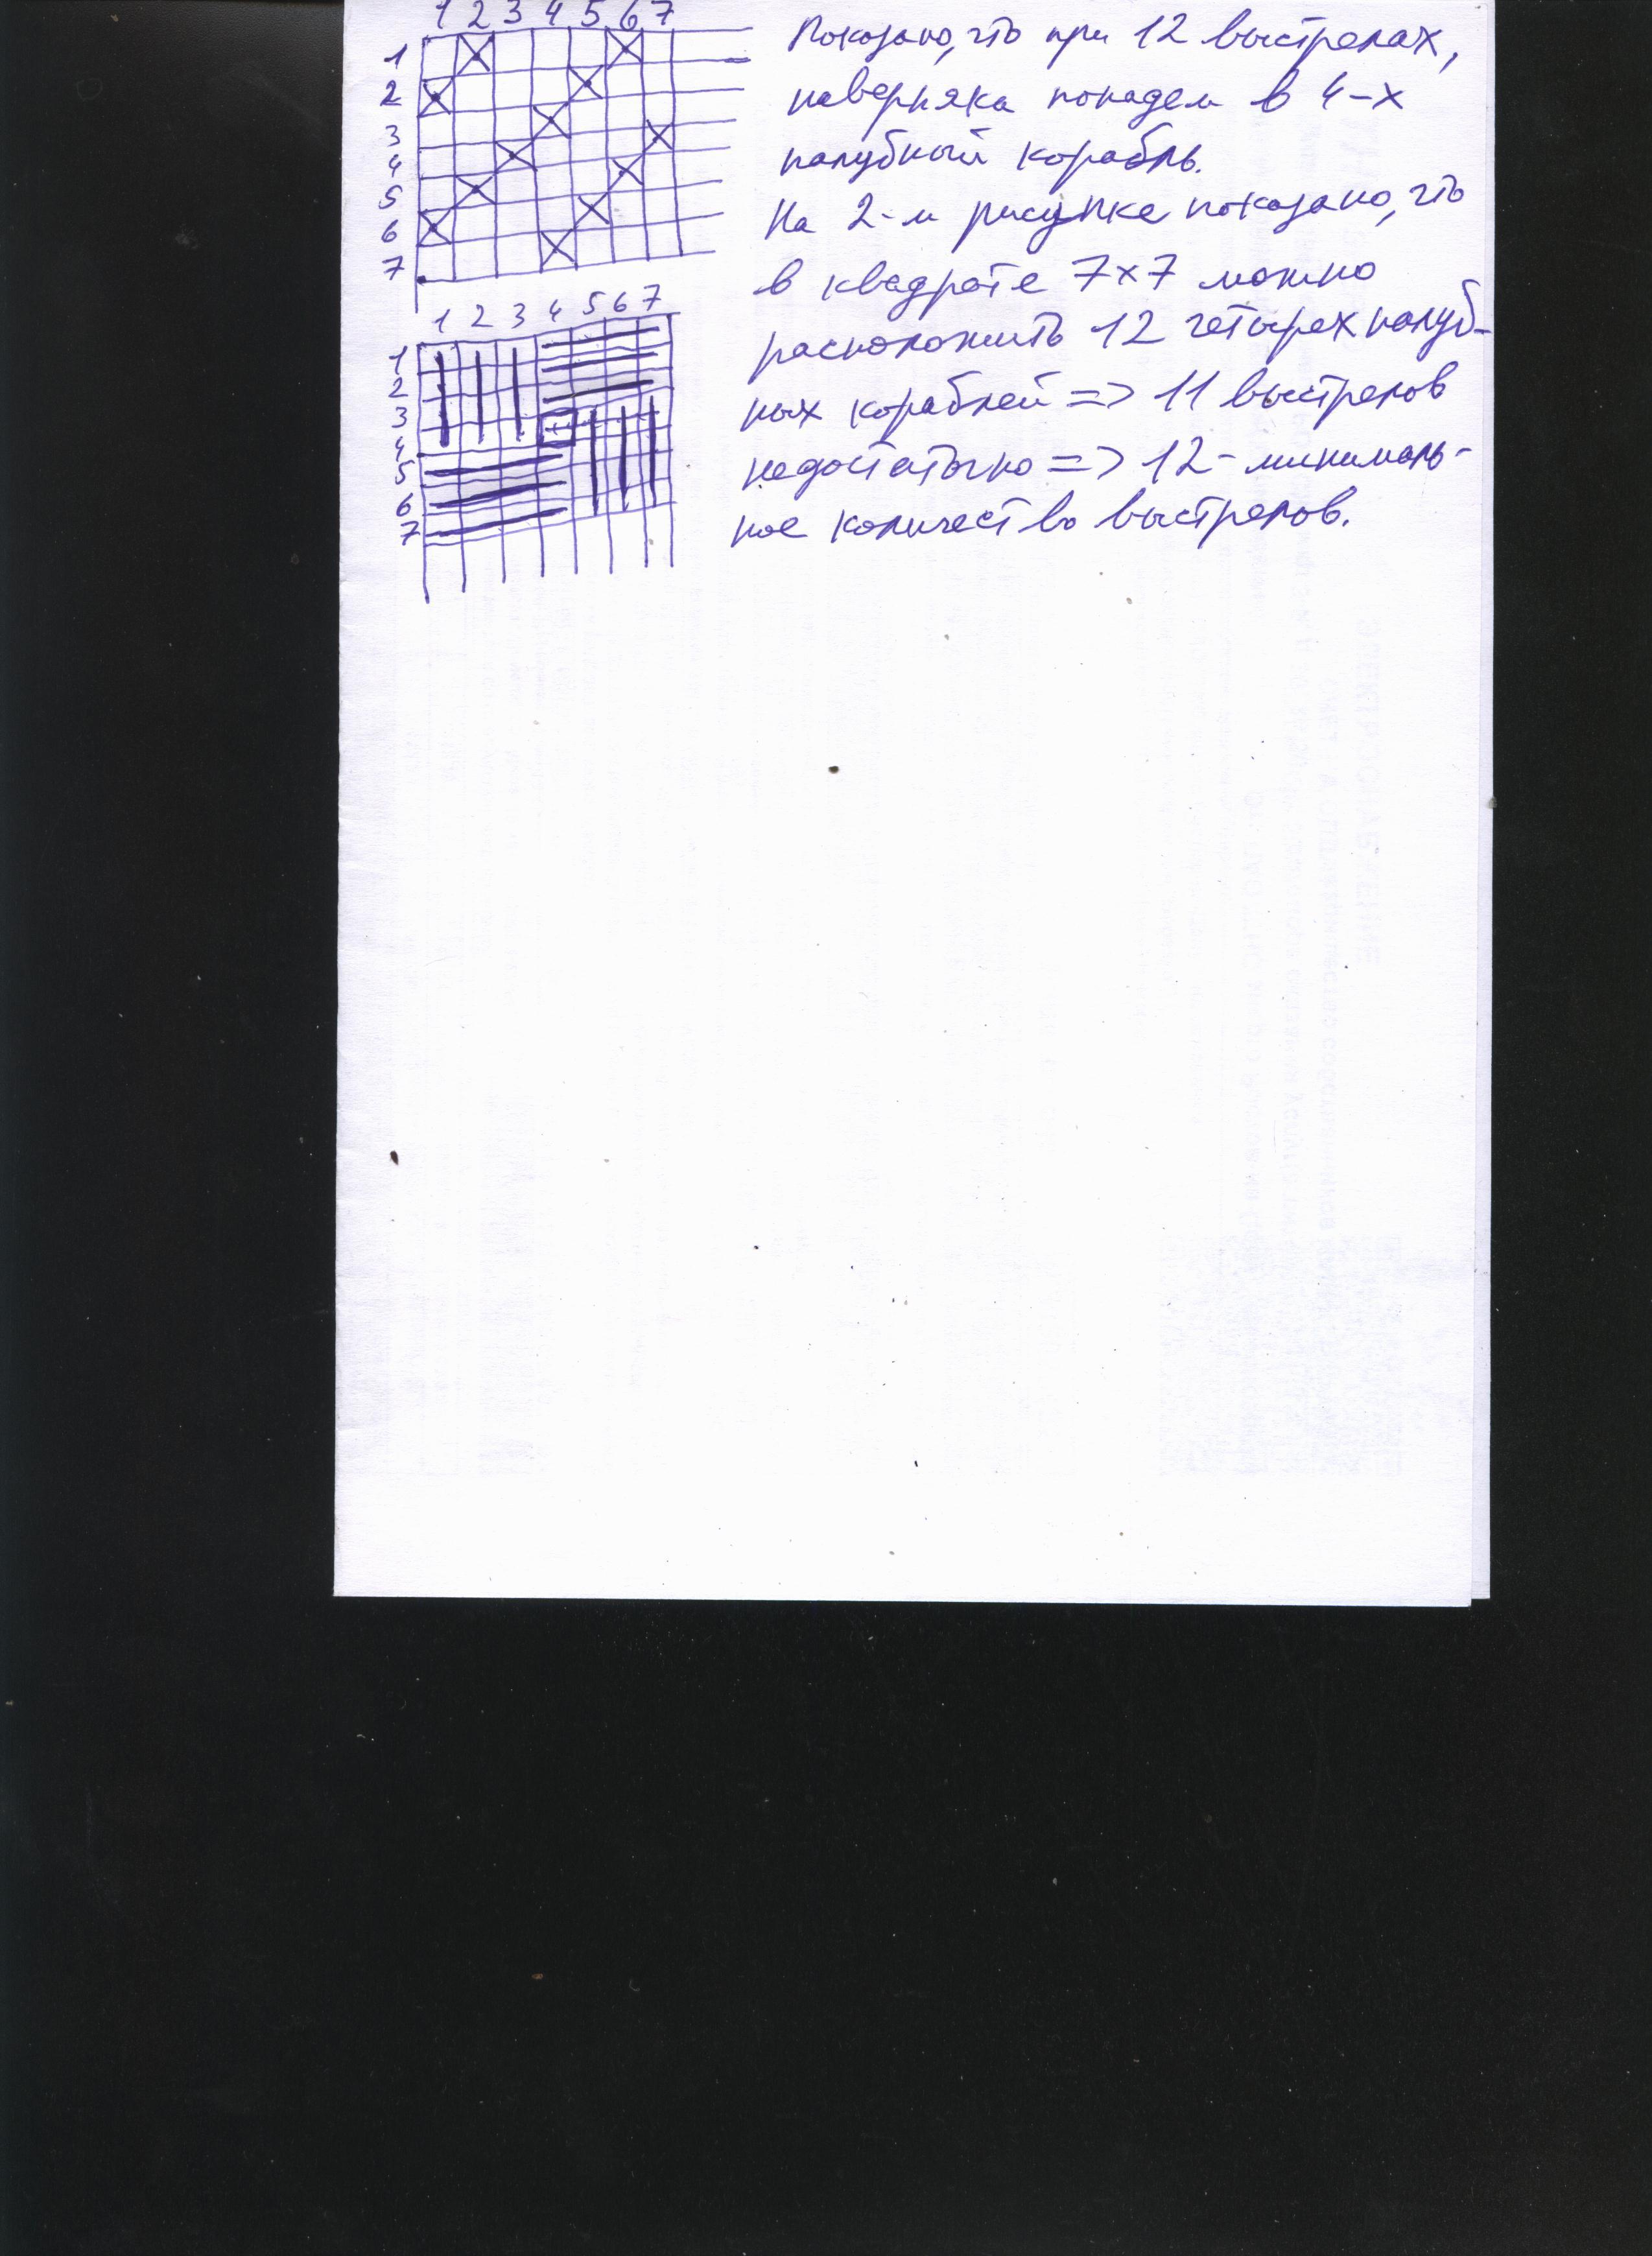 1 2 3 4 5 6 7
1
2
3
4
5
6
7
Показано, что при 12 выстрелах,
наверняка попадем в 4-х
палубный корабль.
На 2-м рисунке показано, что
в квадрате 7×7 можно
расположить 12 четырехпалуб-
ных кораблей => 11 выстрелов
недостаточно => 12 - минималь-
ное количество выстрелов.
1 2 3 4 5 6 7
1
2
3
4
5
6
7